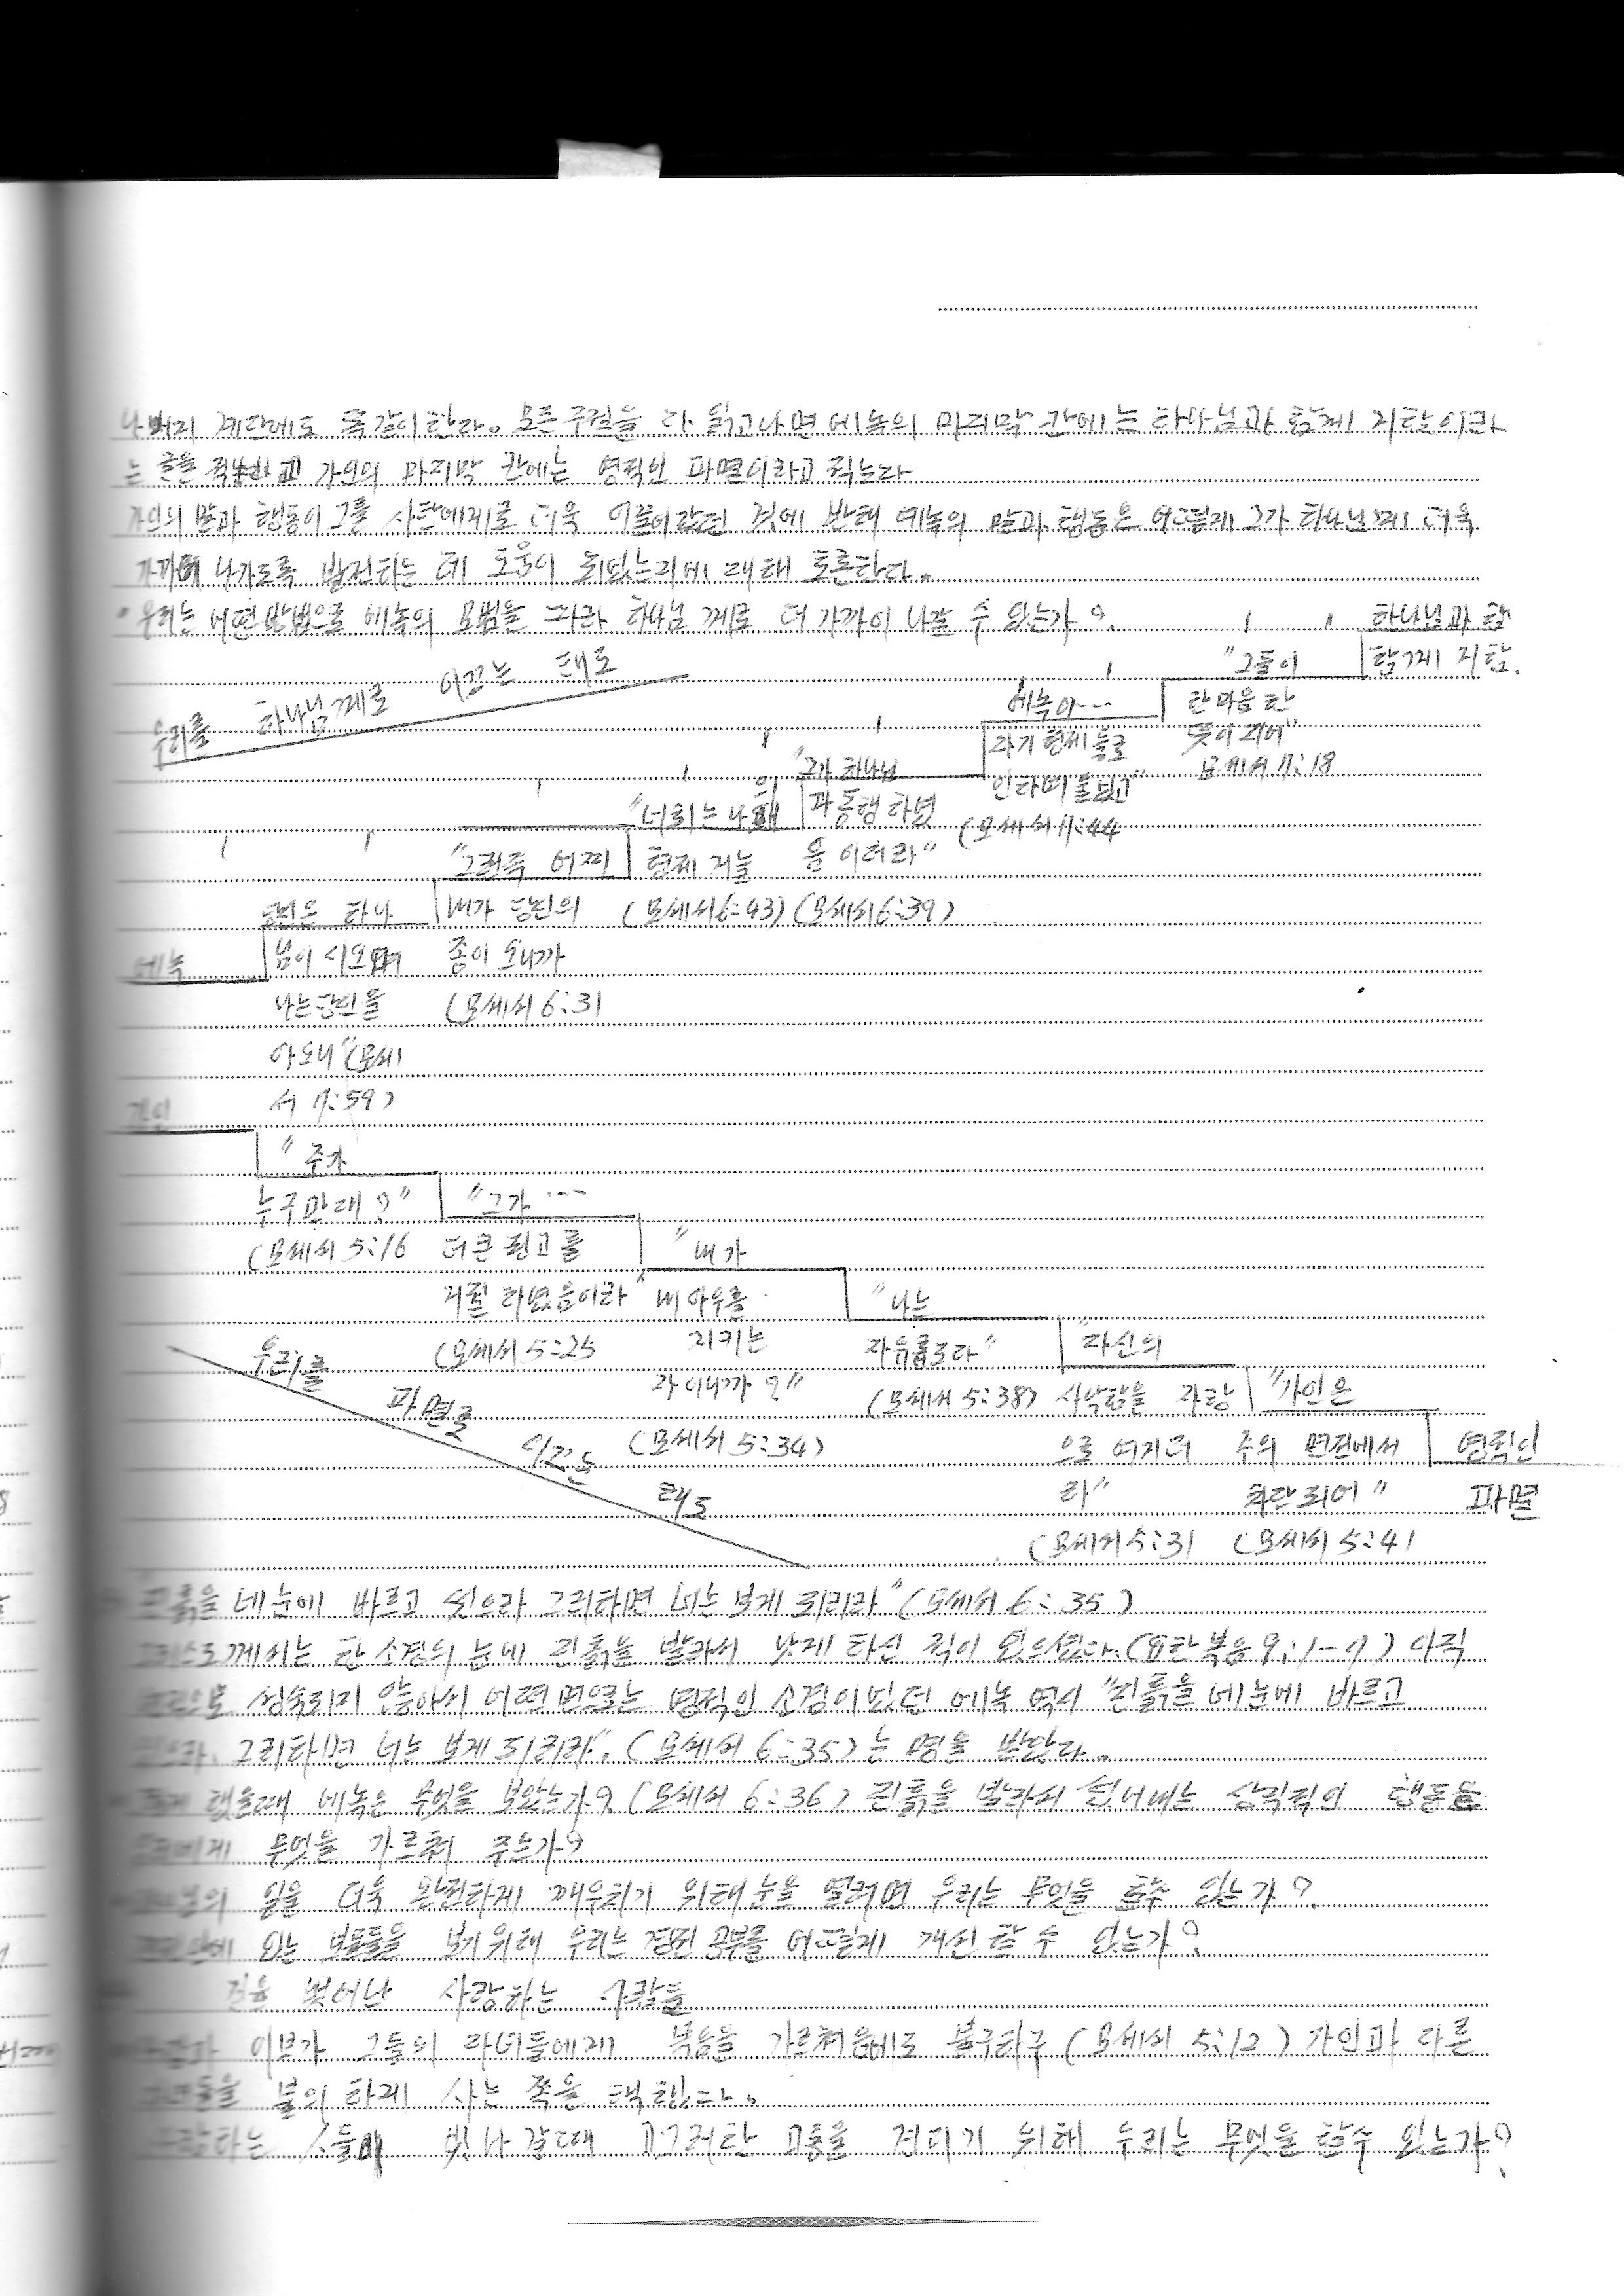 나머지 계단에도 똑같이 한다. 모든 구절을 다 읽고나면 에녹의 마지막 칸에는 하나님과 함께 거함이라
는 글을 적고 가인의 마지막 칸에는 영적인 파멸이라고 적는다
가인의 말과 행동이 그를 사탄에게로 더욱 이끌어갔던 것에 반해 에녹의 말과 행동은 어떻게 그가 하나님께 더욱
가까이 나가도록 발전하는 데 도움이 되었는지에 대해 토론한다.
• 우리는 어떤방법으로 에녹의 모범을 따라 하나님 께로 더 가까이 나갈 수 있는가?
우리를 하나님께로 이끄는 태도
하나님과
함께 거함.
"그들이
한마음 한
뜻이 되어"
모세서 7:18
에녹이...
자기 형제들로
(모세서 7:44
"그가 하나님
과 동행하였
음 이더라"
(모세서6:39)
"너희는 나의
형제 거늘
(모세서6:43)
"그런즉 어찌
내가 당신의
종이 되니까
(모세서 6:31
당신은 하나
님이 시오며
나는당신을
아오니"(모세
서 7:59)
에녹
가인
"주가
누구관대?"
(모세서 5:16
"그가 ...
더큰 권고를
거절 하였음이라"
(모세서 5:25
"내가
내아우를
지키는
자이니까?"
(모세서 5:34)
"나는
자유롭도다"
(모세서 5:38)
"자신의
사악함을 자랑
으로 여기더
라"
(모세서 5:31
"가인은
주의 면전에서
차단되어"
(모세서 5:41
영적인
파멸
우리를 파멸로 이끄는 태도
진흙을 네눈에 바르고 씻으라 그리하면 너는 보게 되리라"(모세서 6:35)
그리스도께서는 한 소경의 눈에 진흙을 발라서 낫게 하신 적이 있으셨다.(요한복음9:1-7) 아직
성숙되지 않아서 어떤면으로는 영적인 소경이었던 에녹 역시 "진흙을 네눈에 바르고
씻으라. 그리하면 너는 보게 되리라". (모세서 6:35)는 명을 받았다.
했을때 에녹은 무엇을 보았는가? (모세서 6:36) 진흙을 발라서 씻어내는 상징적인 행동은
우리에게 무엇을 가르쳐 주는가?
하나님의 일을 더욱 완전하게 깨우치기 위해 눈을 열려면 우리는 무엇을 할수 있는가?
경전안에 있는 보물들을 보기위해 우리는 경전 공부를 어떻게 개선 할 수 있는가?
길을 벗어난 사랑하는 사람들
아담과 이브가 그들의 자녀들에게 복음을 가르쳐음에도 불구하구 (모세서 5:12) 가인과 다른
자녀들을 불의 하게 사는 쪽을 택했다.
사랑하는 빗나갈때 그러한 고통을 견디기 위해 우리는 무엇을 할수 있는가?